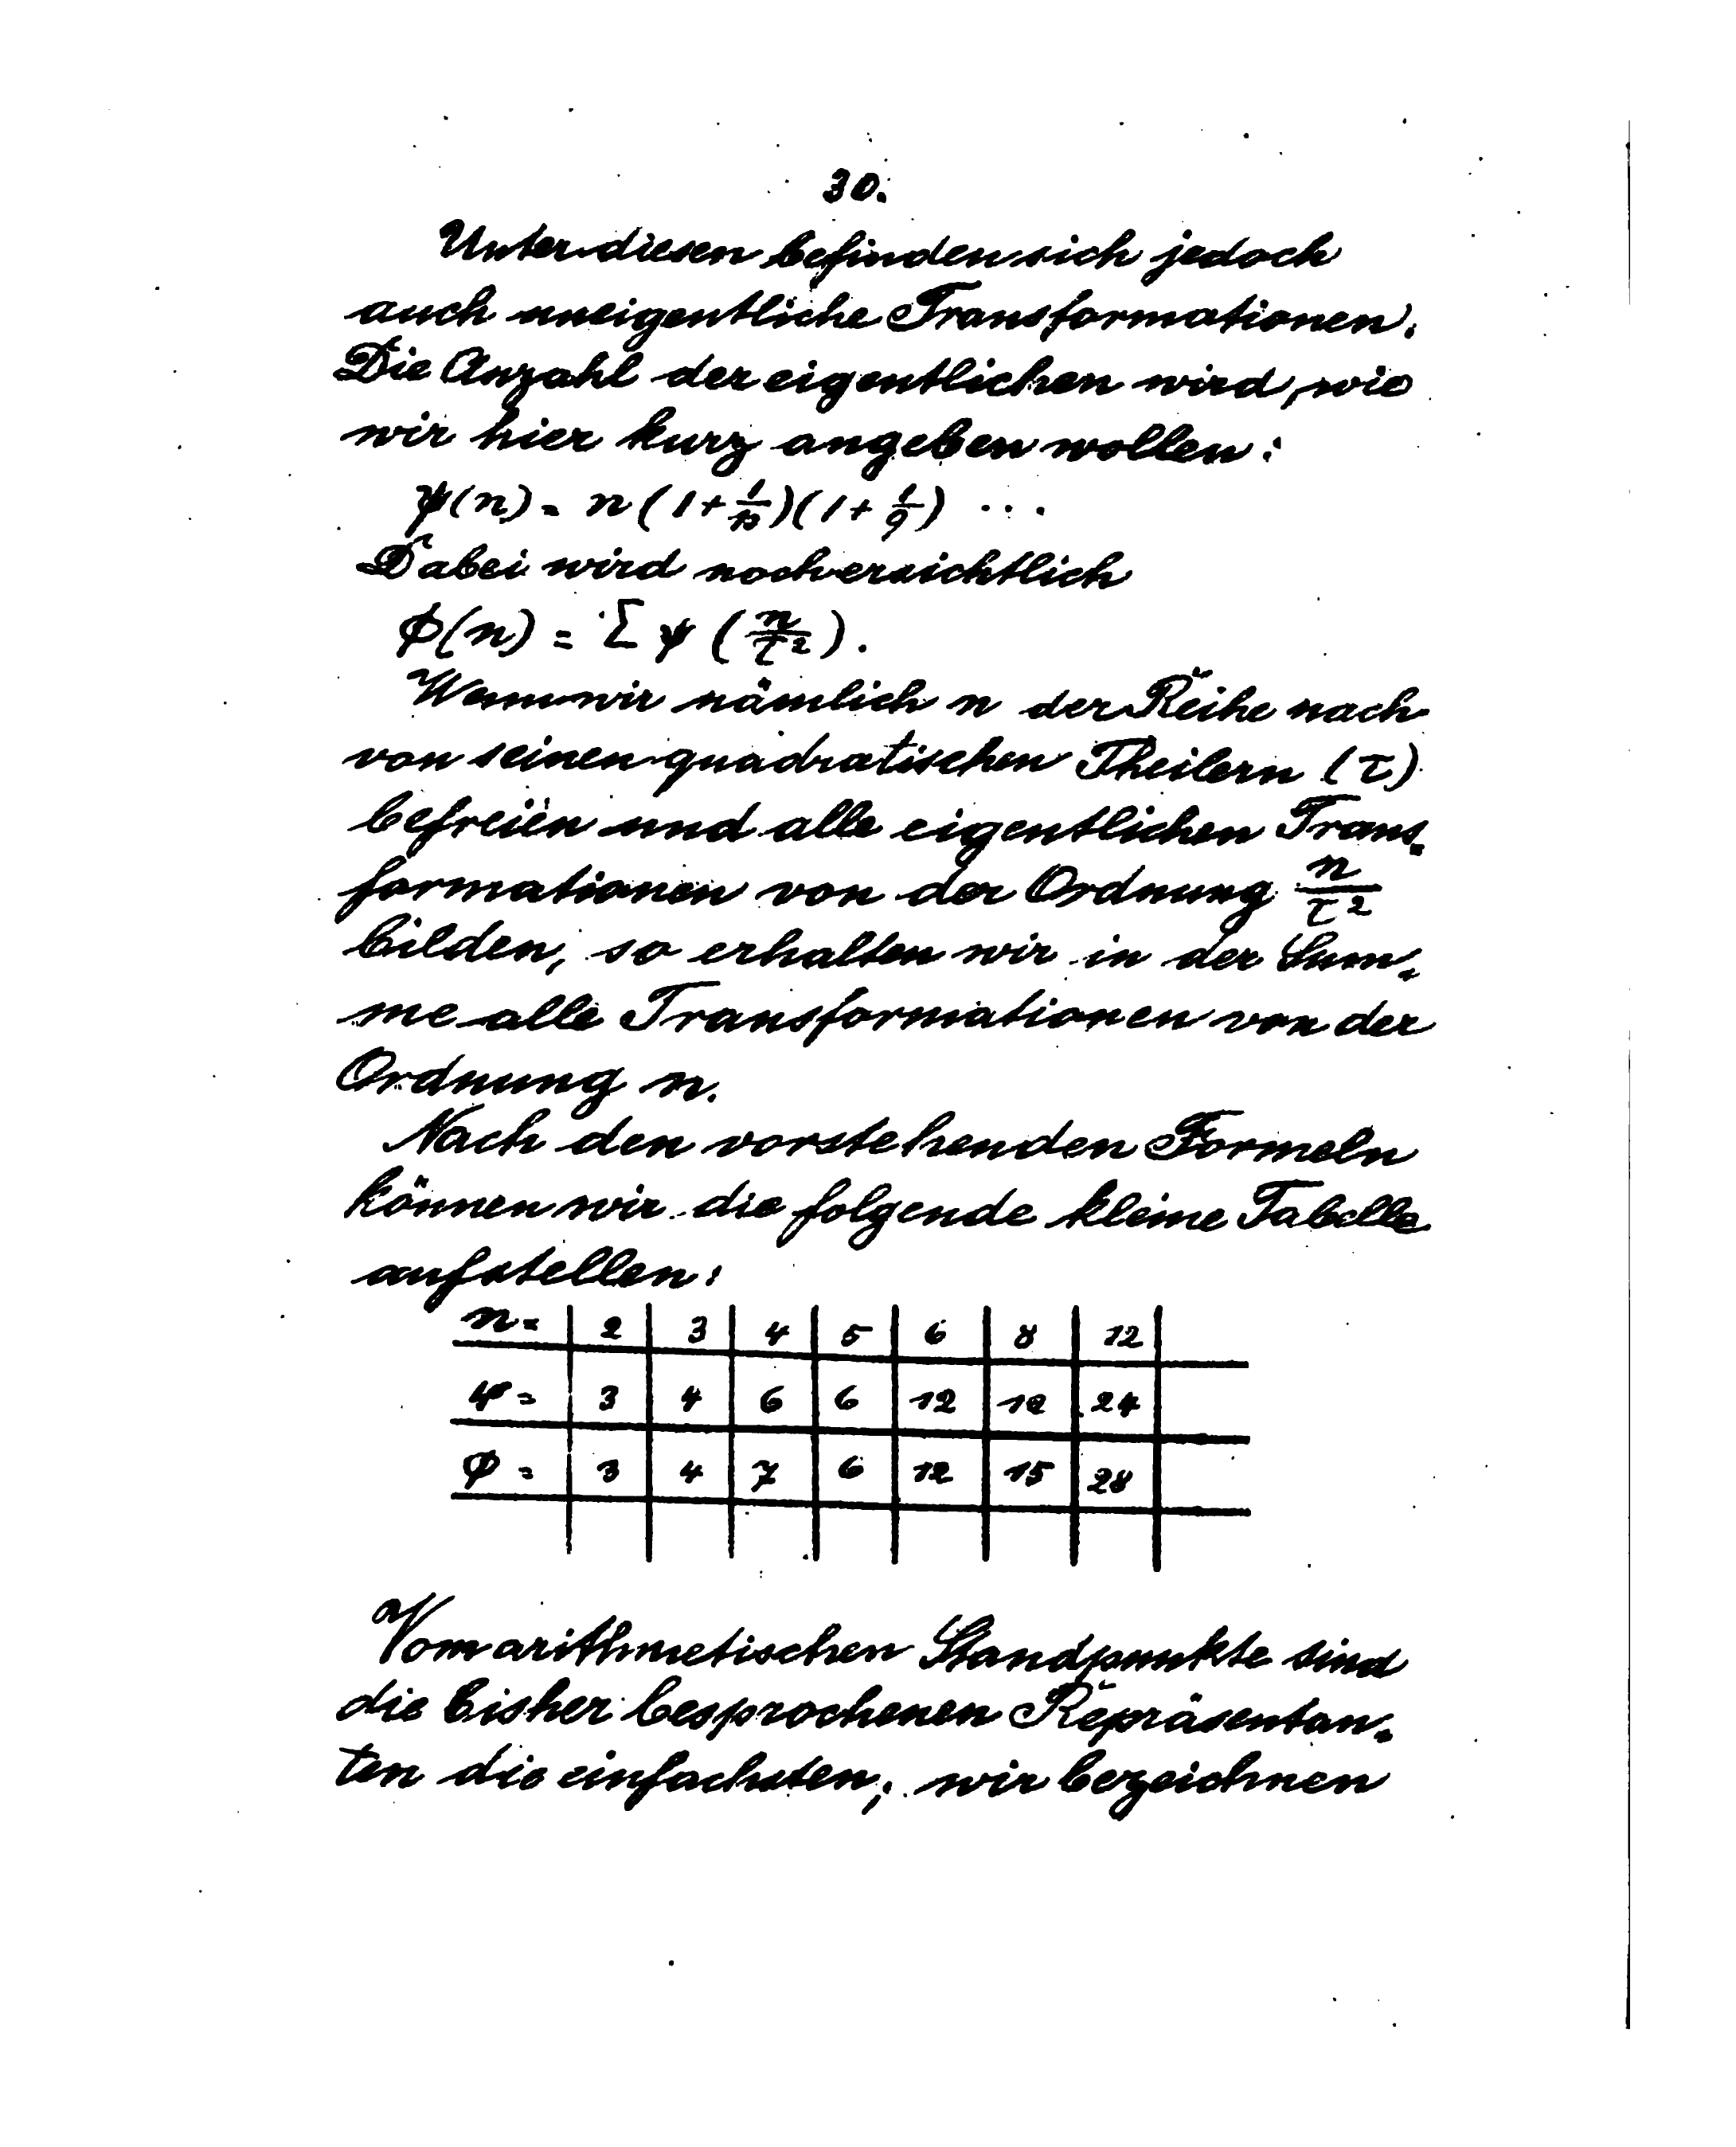 30.
Unter diesen befinden sich jedoch
auch uneigentliche Transformationen.
Die Anzahl der eigentlichen wird, wie
wir hier kurz angeben wollen:
ψ(n) = n (1 + 1/p)(1 + 1/q) ...
Dabei wird noch ersichtlich
Φ(n) = Σ ψ (n/τ²).
Wenn wir nämlich n der Reihe nach
von seinen quadratischen Theilern (τ)
befreien und alle eigentlichen Trans=
formationen von der Ordnung n/τ²
bilden, so erhalten wir in der Sum=
me alle Transformationen von der
Ordnung n.
Nach den vorstehenden Formeln
können wir die folgende kleine Tabelle
aufstellen:
n = 2 3 4 5 6 8 12
ψ = 3 4 6 6 12 12 24
Φ = 3 4 7 6 12 15 28
Vom arithmetischen Standpunkte sind
die bisher besprochenen Repräsentan=
ten die einfachsten; wir bezeichnen